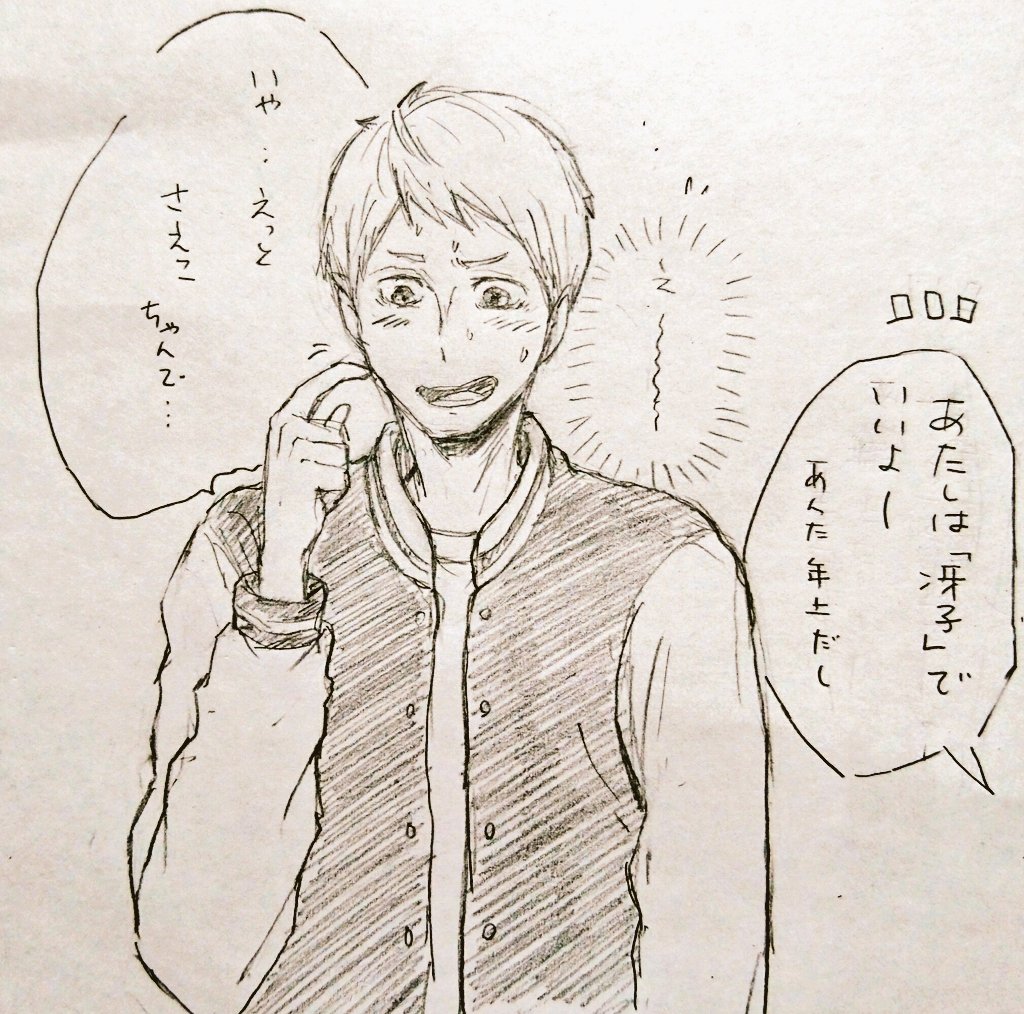 あたしは「冴子」で
いいよー
あんた年上だし
え〜〜〜
いや…えっと
さえこ
ちゃんで…